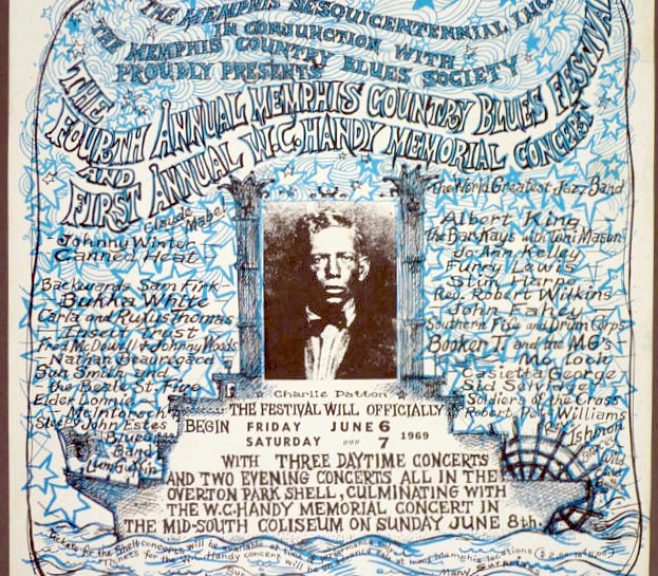 THE MEMPHIS SESQUICENTENNIAL INC.
IN CONJUNCTION WITH
THE MEMPHIS COUNTRY BLUES SOCIETY
PROUDLY PRESENTS
THE
FOURTH ANNUAL MEMPHIS COUNTRY BLUES FESTIVAL
AND
FIRST ANNUAL W.C. HANDY MEMORIAL CONCERT
Claude Mabel
Johnny Winter
Canned Heat
Backwards Sam Firk
Bukka White
Carla and Rufus Thomas
Insect Trust
Fred McDowell & Johnny Woods
Nathan Beauregard
Sun Smith and
the Beale St. Five
Elder Lonnie
McIntorsch
Sleepy John Estes
Blues
Band
the World Greatest Jazz Band
Albert King
the Bar Kays with Toni Mason
Jo Ann Kelley
Furry Lewis
Slim Harpo
Rev. Robert Wilkins
John Fahey
Southern Fife and Drum Corps
Booker T. and the MG's
Moloch
Casietta George
Sid Selvidge
Soldiers of the Cross
Robert Pete Williams
Ishmon
Charlie Patton
THE FESTIVAL WILL OFFICIALLY
BEGIN FRIDAY JUNE 6
SATURDAY 7 1969
WITH THREE DAYTIME CONCERTS
AND TWO EVENING CONCERTS ALL IN THE
OVERTON PARK SHELL, CULMINATING WITH
THE W.C. HANDY MEMORIAL CONCERT IN
THE MID-SOUTH COLISEUM ON SUNDAY JUNE 8th.
Tickets for the Shell concerts will be available at time of performance only
Tickets for the W.C. Handy concert will be on advance sale at many Memphis locations
Many